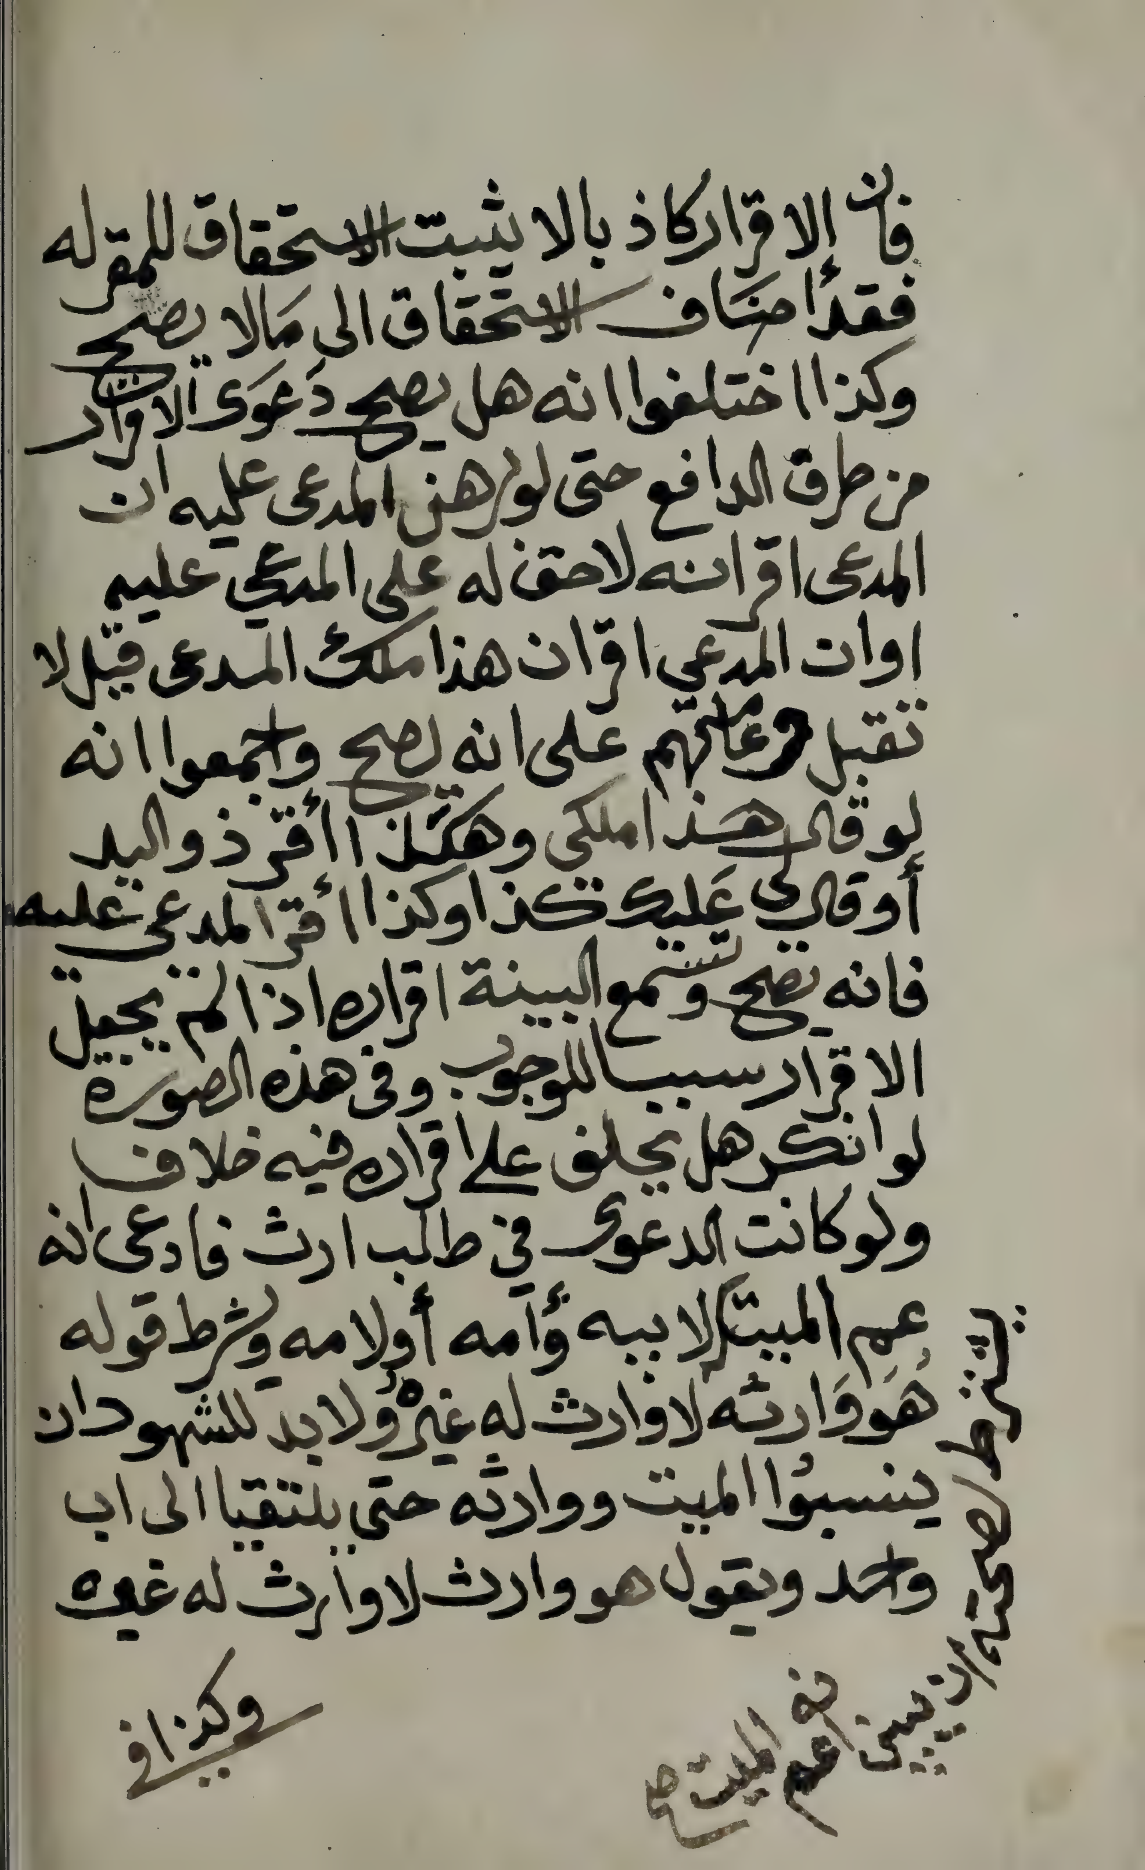 فان الاقرار كاذبا لا يثبت الاستحقاق للمقر له
فقد أضاف الاستحقاق الى مالا يصح
وكذا اختلفوا انه هل يصح دعوى الاقرار
من طرق الدافع حتى لو برهن المدعى عليه ان
المدعى اقر انه لا حق له على المدعي عليه
اوان المدعي اقر ان هذا ملك المدعى قيل لا
تقبل وعامتهم على انه يصح واجمعوا انه
لو قال هذا ملكي وهكذا أقر ذو اليد
أو قال لي عليك كذا وكذا أقر المدعى عليه
فانه يصح وتسمع البينة اقراره اذا لم يجعل
الاقرار سببا للوجوب وفي هذه الصورة
لو انكر هل يحلف على اقراره فيه خلاف
ولو كانت الدعوى في طلب ارث فادعى انه
عم الميت لابيه وأمه أولامه ويشرط قوله
هو وارثه لا وارث له غيره ولا بد للشهود ان
ينسبوا الميت ووارثه حتى يلتقيا الى اب
واحد ويقول هو وارث لا وارث له غيره
يشترط لصحته ان يبين
انه عم الميت صح
وكذا في